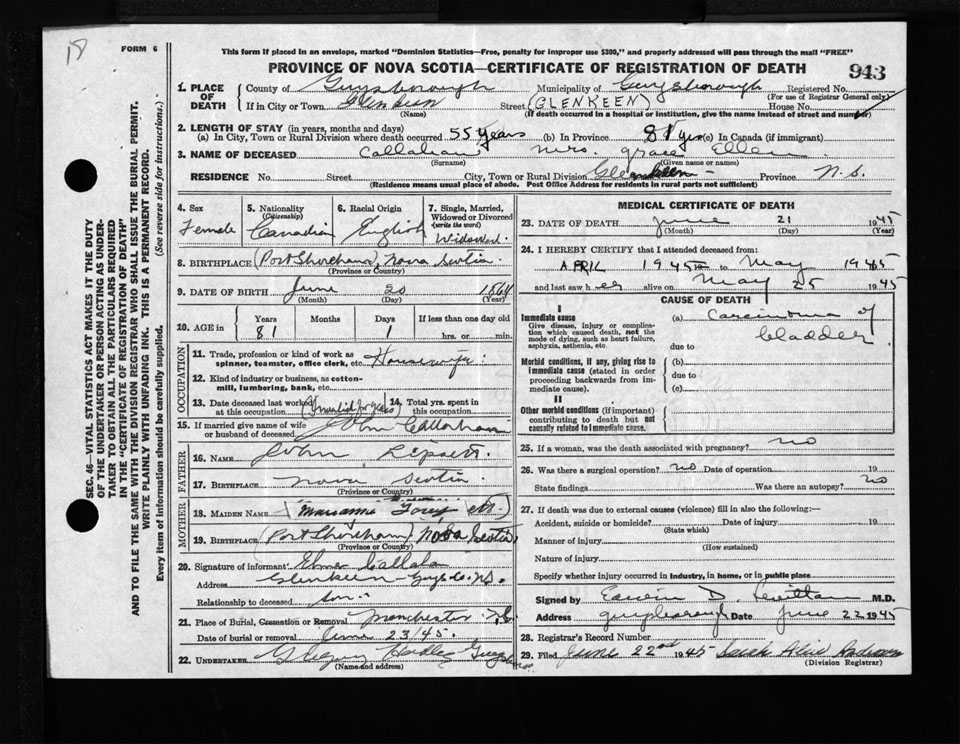 18
FORM 6
This form if placed in an envelope, marked "Dominion Statistics—Free, penalty for improper use $300," and properly addressed will pass through the mail "FREE"
PROVINCE OF NOVA SCOTIA—CERTIFICATE OF REGISTRATION OF DEATH
943
SEC. 46—VITAL STATISTICS ACT MAKES IT THE DUTY
OF THE UNDERTAKER OR PERSON ACTING AS UNDER-
TAKER TO OBTAIN ALL THE PARTICULARS REQUIRED
IN THE "CERTIFICATE OF REGISTRATION OF DEATH"
AND TO FILE THE SAME WITH THE DIVISION REGISTRAR WHO SHALL ISSUE THE BURIAL PERMIT.
WRITE PLAINLY WITH UNFADING INK. THIS IS A PERMANENT RECORD.
Every item of information should be carefully supplied. (See reverse side for instructions.)
1. PLACE OF DEATH County of Guysborough Municipality of Guysborough Registered No.
(For use of Registrar General only)
If in City or Town Glenkeen Street (GLENKEEN) House No.
(Name) (If death occurred in a hospital or institution, give the name instead of street and number)
2. LENGTH OF STAY (in years, months and days)
(a) In City, Town or Rural Division where death occurred 55 years (b) In Province 81 yrs (c) In Canada (if immigrant)
3. NAME OF DECEASED Callahan Mrs. Grace Ellen
(Surname) (Given name or names)
RESIDENCE No. Street City, Town or Rural Division Glenkeen Province N.S.
(Residence means usual place of abode. Post Office Address for residents in rural parts not sufficient)
4. Sex Female
5. Nationality (Citizenship) Canadian
6. Racial Origin English
7. Single, Married, Widowed or Divorced (write the word) Widowed
8. BIRTHPLACE (Port Shoreham) Nova Scotia
(Province or Country)
9. DATE OF BIRTH June 20 1864
(Month) (Day) (Year)
10. AGE in Years Months Days If less than one day old
81 1 hrs. or min.
OCCUPATION
11. Trade, profession or kind of work as spinner, teamster, office clerk, etc. Housewife
12. Kind of industry or business, as cotton-mill, lumbering, bank, etc.
13. Date deceased last worked at this occupation (Invalid for years) 14. Total yrs. spent in this occupation
15. If married give name of wife or husband of deceased
FATHER
16. NAME John
17. BIRTHPLACE Nova Scotia
(Province or Country)
MOTHER
18. MAIDEN NAME
19. BIRTHPLACE (Port Shoreham) Nova Scotia
(Province or Country)
20. Signature of informant Callahan
Address Glenkeen Guys. Co. N.S.
Relationship to deceased Son
21. Place of Burial, Cremation or Removal Manchester N.S.
Date of burial or removal June 23/45.
22. UNDERTAKER
(Name and address)
MEDICAL CERTIFICATE OF DEATH
23. DATE OF DEATH June 21 1945
(Month) (Day) (Year)
24. I HEREBY CERTIFY that I attended deceased from:
APRIL 1945 to May 1945
and last saw her alive on May 25 1945
CAUSE OF DEATH
I
Immediate cause
Give disease, injury or complication which caused death, not the mode of dying, such as heart failure, asphyxia, asthenia, etc.
(a) Carcinoma of bladder
due to
Morbid conditions, if any, giving rise to immediate cause (stated in order proceeding backwards from immediate cause).
(b)
due to
(c)
II
Other morbid conditions (if important) contributing to death but not causally related to immediate cause.
25. If a woman, was the death associated with pregnancy? no
26. Was there a surgical operation? no Date of operation 19
State findings Was there an autopsy? no
27. If death was due to external causes (violence) fill in also the following:—
Accident, suicide or homicide? Date of injury 19
(State which)
Manner of injury
(How sustained)
Nature of injury
Specify whether injury occurred in industry, in home, or in public place
Signed by D. M.D.
Address Guysborough Date June 22 1945
28. Registrar's Record Number
29. Filed June 22nd 1945 Sarah
(Division Registrar)